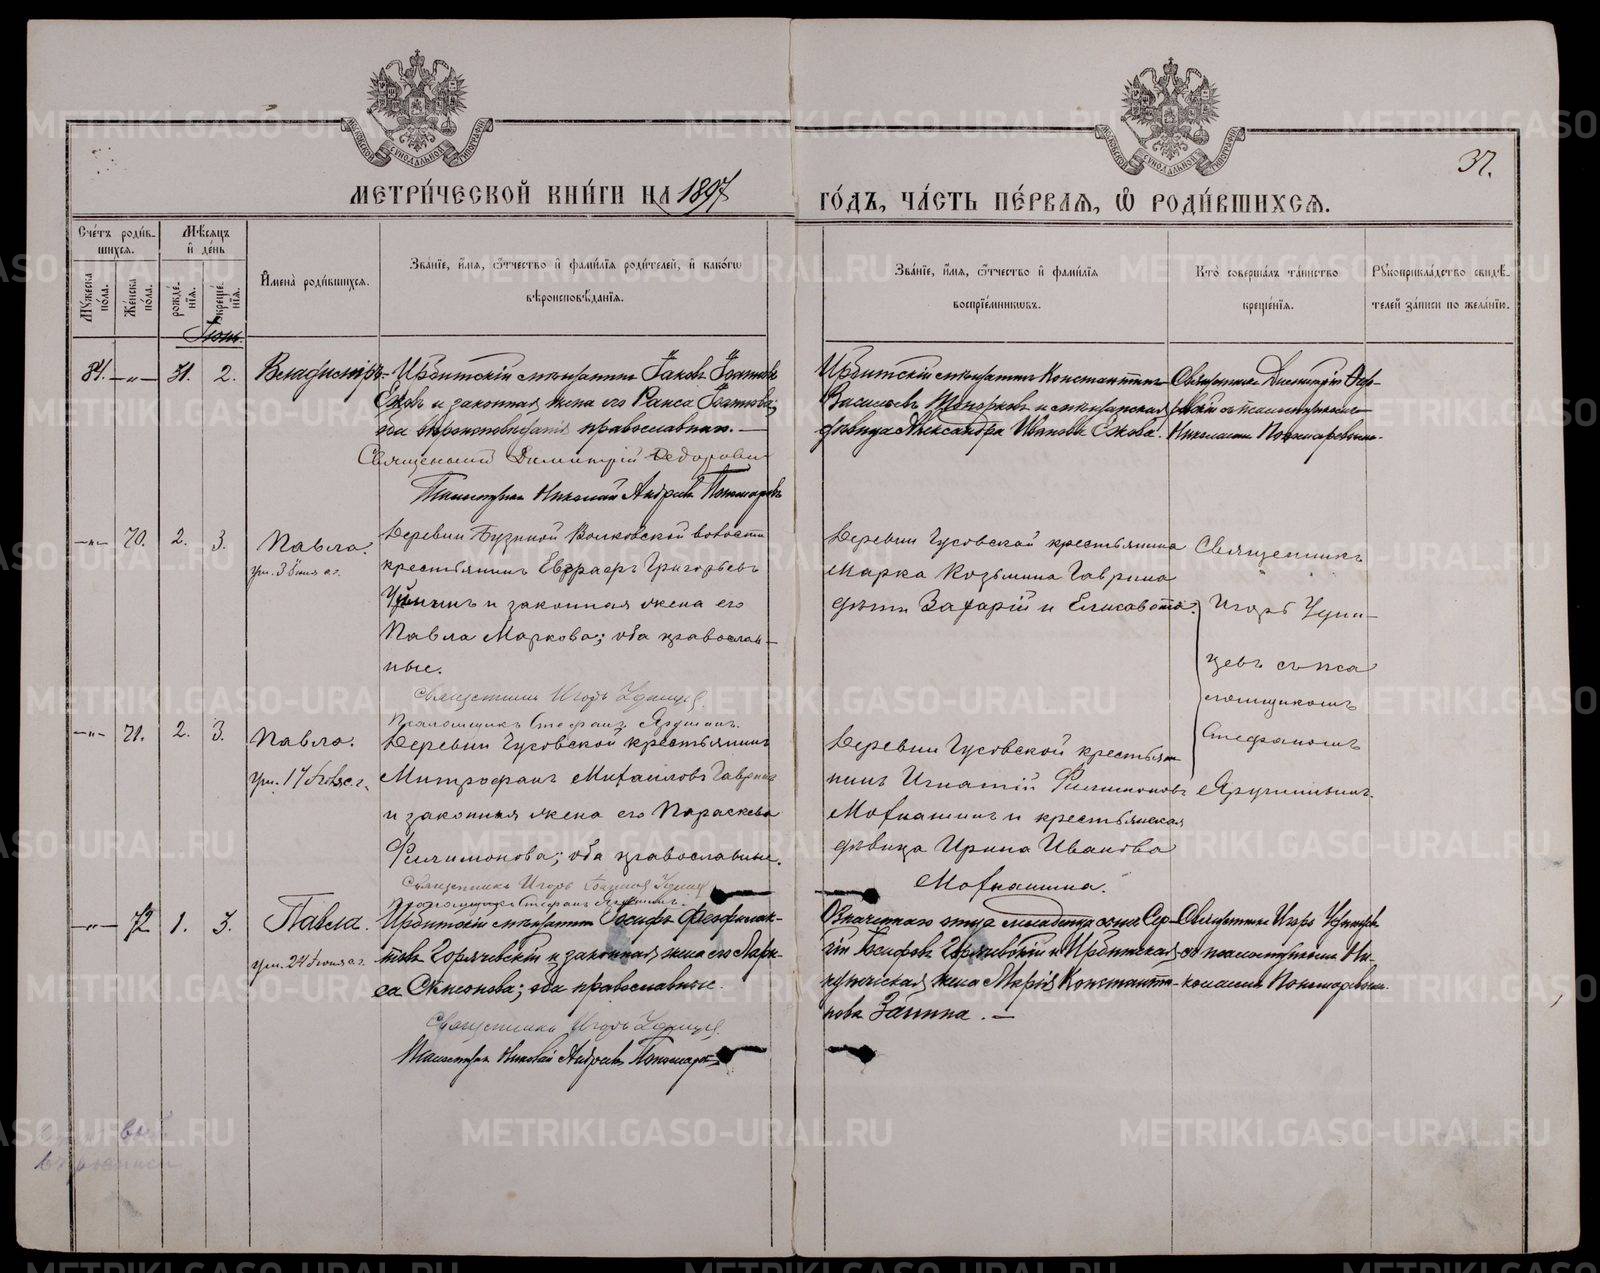 37.
МЕТРИ́ЧЕСКОЙ КНИ́ГИ НА 1897
ГО́ДЪ, ЧА́СТЬ ПЕ́РВАЯ, Ѿ РОДИ́ВШИХСЯ.
Счетъ роди́вшихся.
Мѣсяцъ и день
Мужеска пола.
Женска пола.
рожденія.
крещенія.
Имена роди́вшихся.
Званіе, имя, отчество и фамилія родителей, и какого
вѣроисповѣданія.
Званіе, имя, отчество и фамилія
воспріемниковъ.
Кто совершалъ таинство
крещенія.
Рукоприкладство свидѣ-
телей записи по желанію.
Іюнь.
84. —„— 31. 2. Владиміръ.
Ирбитскій мѣщанинъ Іаковъ Іоанновъ
Ежовъ и законная жена его Раиса Іоаннова;
оба вѣроисповѣданія православнаго. —
Священникъ Димитрій
Псаломщикъ Николай Андреевъ Пономаревъ
Ирбитскій мѣщанинъ Константинъ
Васильевъ Топорковъ и мѣщанская
дѣвица Александра Иванова Ежова.
Священникъ Димитрій
съ псаломщикомъ
Николаемъ Пономаревымъ.
—„— 70. 2. 3. Павла.
ум. 3 Іюля с.г.
Деревни Бузиной Волковской волости
крестьянинъ Григорьевъ
и законная жена его
Павла Маркова; оба православ-
ные.
Священникъ Игорь Удинцев
Псаломщикъ Стефанъ Ярушинъ.
Деревни Гусовской крестьянина
Марка Козьмина Гаврина
дѣти Захарій и Елисавета.
Священникъ
Игорь Удин-
цевъ съ пса
ломщикомъ
Стефаномъ
Ярушинымъ.
—„— 71. 2. 3. Павла.
ум. 17 с.г.
Деревни Гусовской крестьянинъ
Митрофанъ Михаиловъ Гавринъ
и законная жена его Параскева
Филимонова; оба православные.
Священникъ Игорь Удинцев
Псаломщикъ Стефанъ Ярушинъ.
Деревни Гусовской крестьян
нинъ Игнатій Филимоновъ
Мохнашинъ и крестьянская
дѣвица Ирина Иванова
Мохнашина.
—„— 72. 1. 3. Павла.
ум. 24 Іюня с.г.
Ирбитскій мѣщанинъ Іосифъ Феофилак-
товъ Горячевскій и законная жена его Лари-
са Симеонова; оба православные.
Священникъ Игорь Удинцев
Псаломщикъ Николай Андреевъ Пономаревъ
Означеннаго отца младенца сынъ Сер-
гій Іосифовъ Горячевскій и Ирбитская
купеческая жена Марія Константи-
нова Зянина. —
Священникъ Игорь Удинцевъ
съ псаломщикомъ Ни-
колаемъ Пономаревымъ.
METRIKI.GASO-URAL.RU